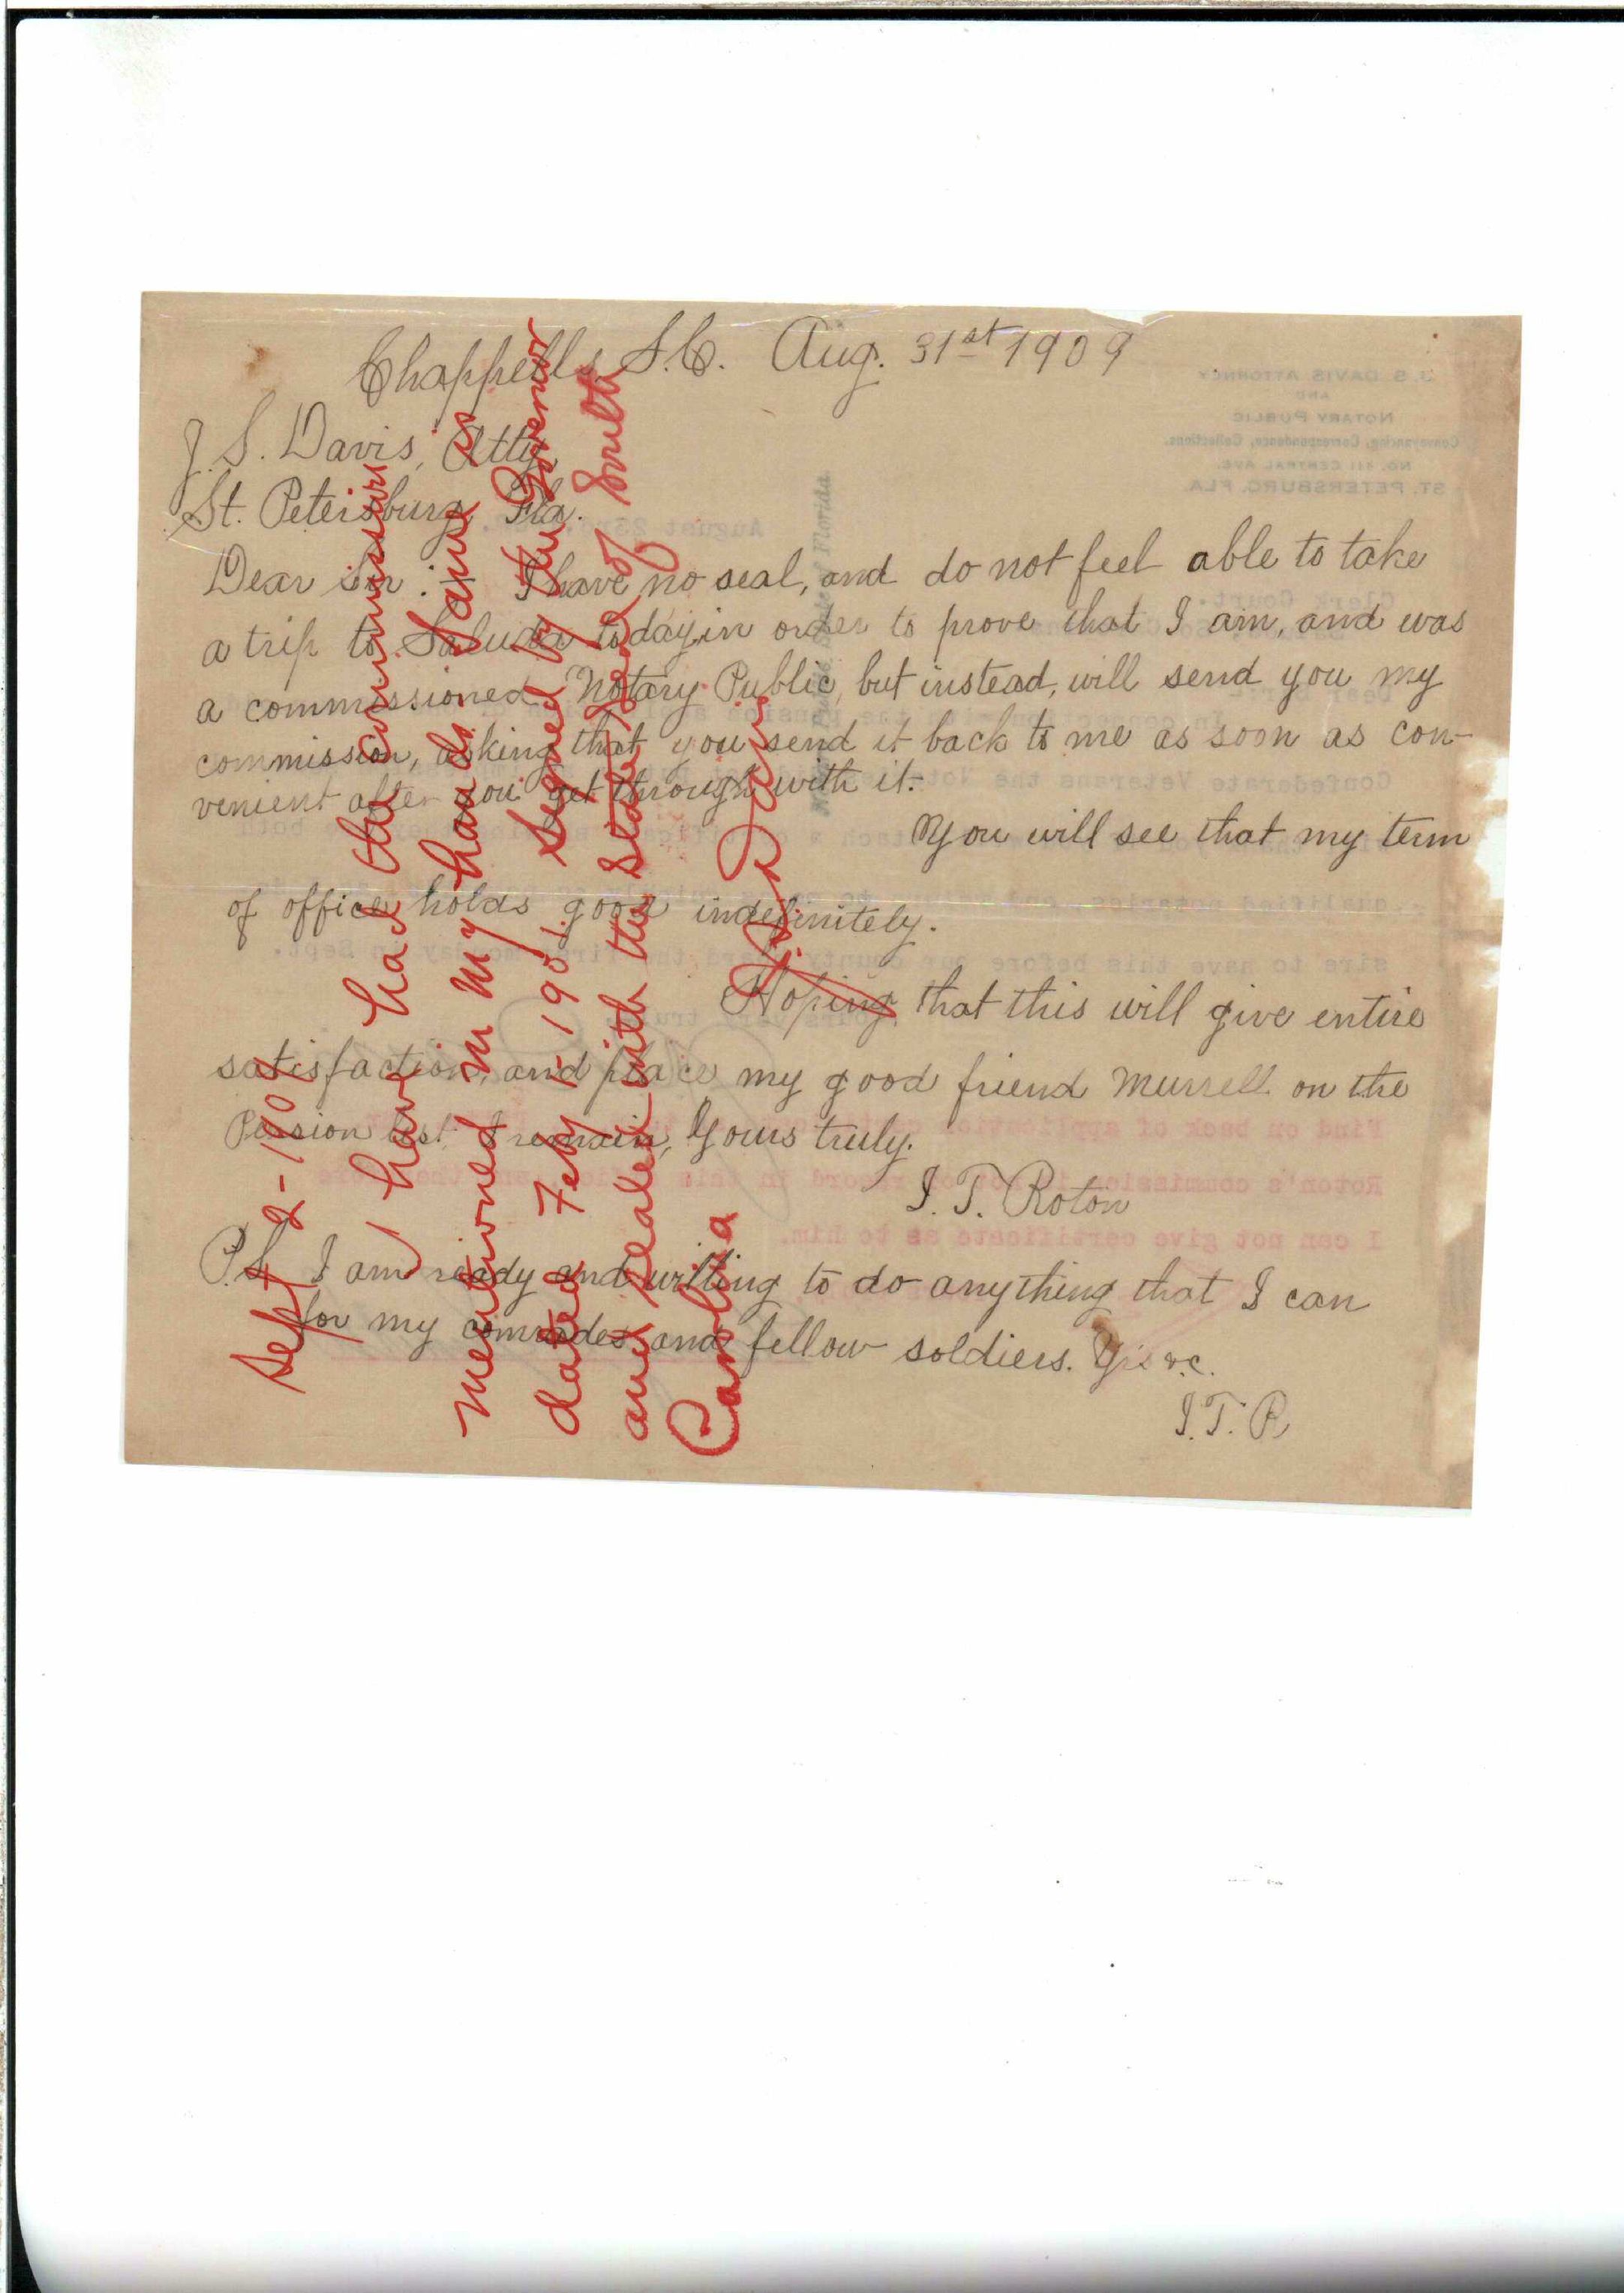 Chappells, S.C. Aug. 31st 1909
J. S. Davis, Atty,
St. Petersburg, Fla.
Dear Sir: I have no seal, and do not feel able to take
a trip to Saluda today, in order to prove that I am, and was
a commissioned Notary Public, but instead, will send you my
commission, asking that you send it back to me as soon as con-
venient after you get through with it.
You will see that my term
of office holds good indefinitely.
Hoping that this will give entire
satisfaction, and place my good friend Murrell on the
Pension list I remain, Yours truly.
I. T. Roton
P.S. I am ready and willing to do anything that I can
for my comrades and fellow soldiers. Yrs &c.
I. T. R
Sept 2 - 1909
I have had the commission
mentioned in my hands. Same is
dated Feby 15 1901. Signed by the Governor
and sealed with the State Seal of South
Carolina
J. S. Davis
J. S. DAVIS ATTORNEY
AND
NOTARY PUBLIC
Conveyancing, Correspondence, Collections.
ST. PETERSBURG, FLA.
August 23rd
Clerk Court.
Confederate Veterans the Not
sire to have this before our county board the first monday in Sept.
Find on back of application
Roton's commission is not of record in this office, and therefore
I can not give certificate as to him.